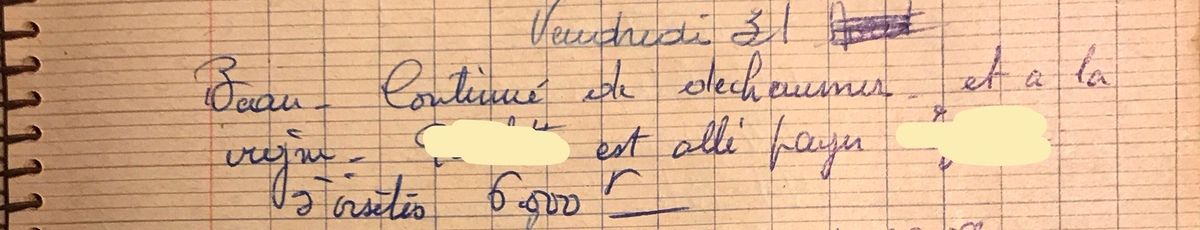 Vendredi 31
Beau - Continué de dechaumer - et a la
vigne - est allé payer
visites 6.900 F